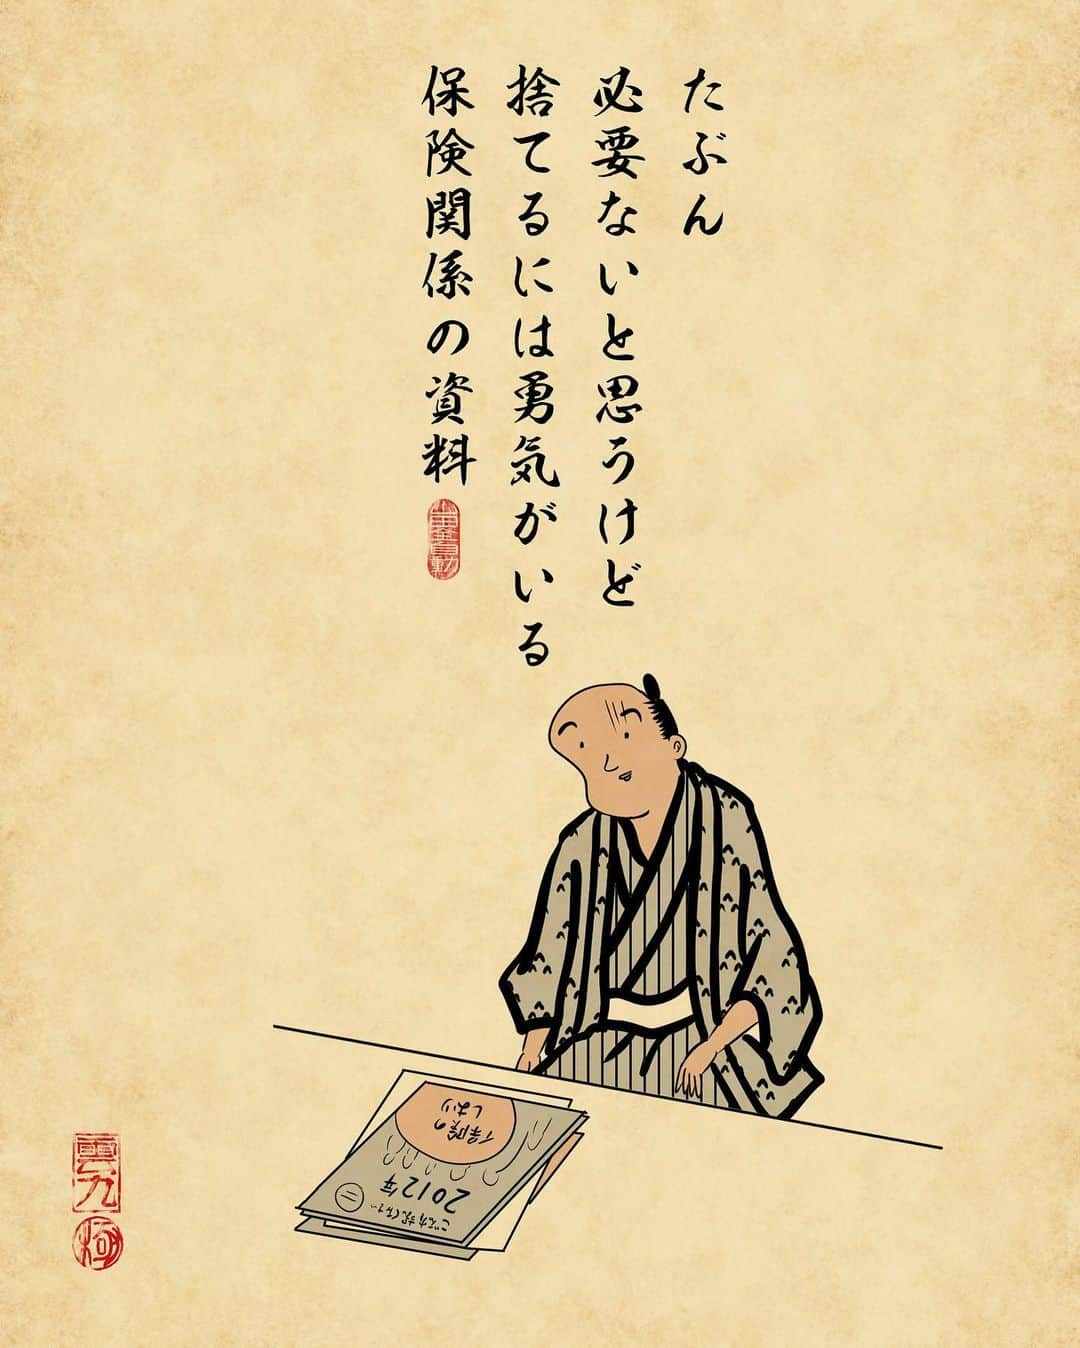 たぶん
必要ないと思うけど
捨てるには勇気がいる
保険関係の資料
保険の
しおり
2012年